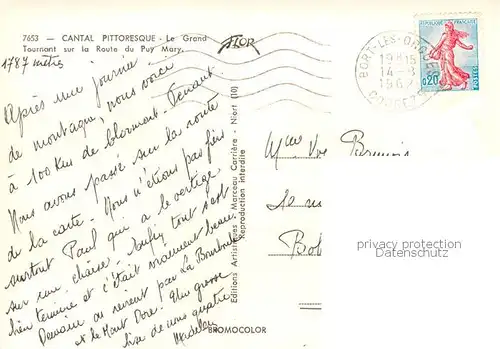 7653 — CANTAL PITTORESQUE - Le Grand
Tournant sur la Route du Puy Mary.
1787 mètres
FLOR
Après une journée
de montagne, nous voici
à 100 Kms de Clermont. Tenant
Nous avons passé sur la route
de la carte. Nous n'étions pas fiers
surtout Paul qui a le vertige
sur une chaise. Enfin tout s'est
bien terminé et c'était vraiment beau.
Demain on revient par La Bourboule
et le Mont Dore. Une grosse
bise de nous quatre
Madeleine
Editions Artistiques Marceau Carrière - Niort (10)
Reproduction interdite
BROMOCOLOR
BORT-LES-ORGUES
19H15
14-8
196
CORREZE
REPUBLIQUE FRANÇAISE
0,20
POSTES
Mme Vve
10
Bob
privacy protection
Datenschutz